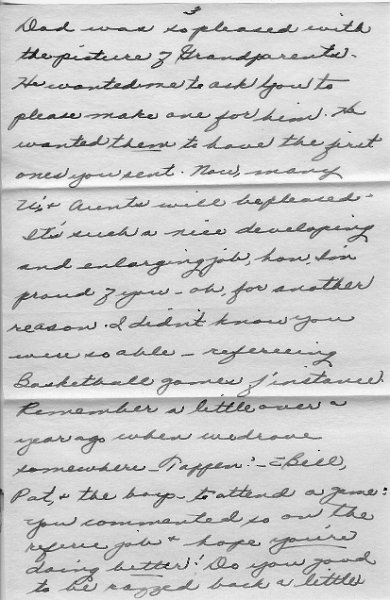 3
Dad was so pleased with
the picture of Grandparents.
He wanted me to ask you to
please make one for him. He
wanted them to have the first
ones you sent. Now, many
U's + Aunts will be pleased -
It's such a nice developing
and enlarging job, hon, I'm
proud of you - oh, for another
reason. I didn't know you
were so able - refereeing
Basketball games f'instance.
Remember a little over a
year ago when we drove
somewhere - Tappen? - = Bill,
Pat, + the boys - to attend a game:
you commented so on the
referee job + hope you're
doing better! Do you good
to be razzed back a little